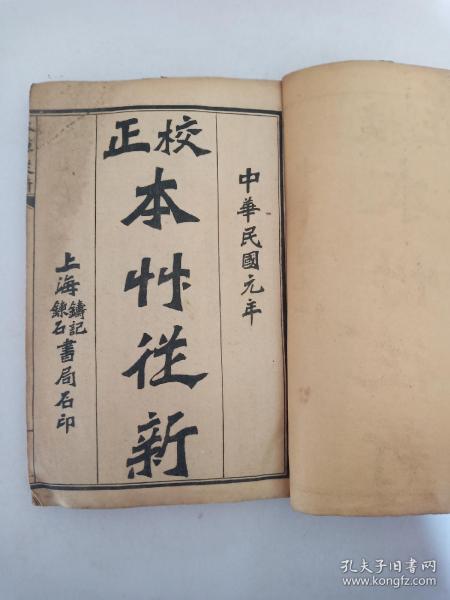 中華民國元年
校正
本艸從新
上海鑄記
錬石書局石印
孔夫子旧书网
www.kongfz.com